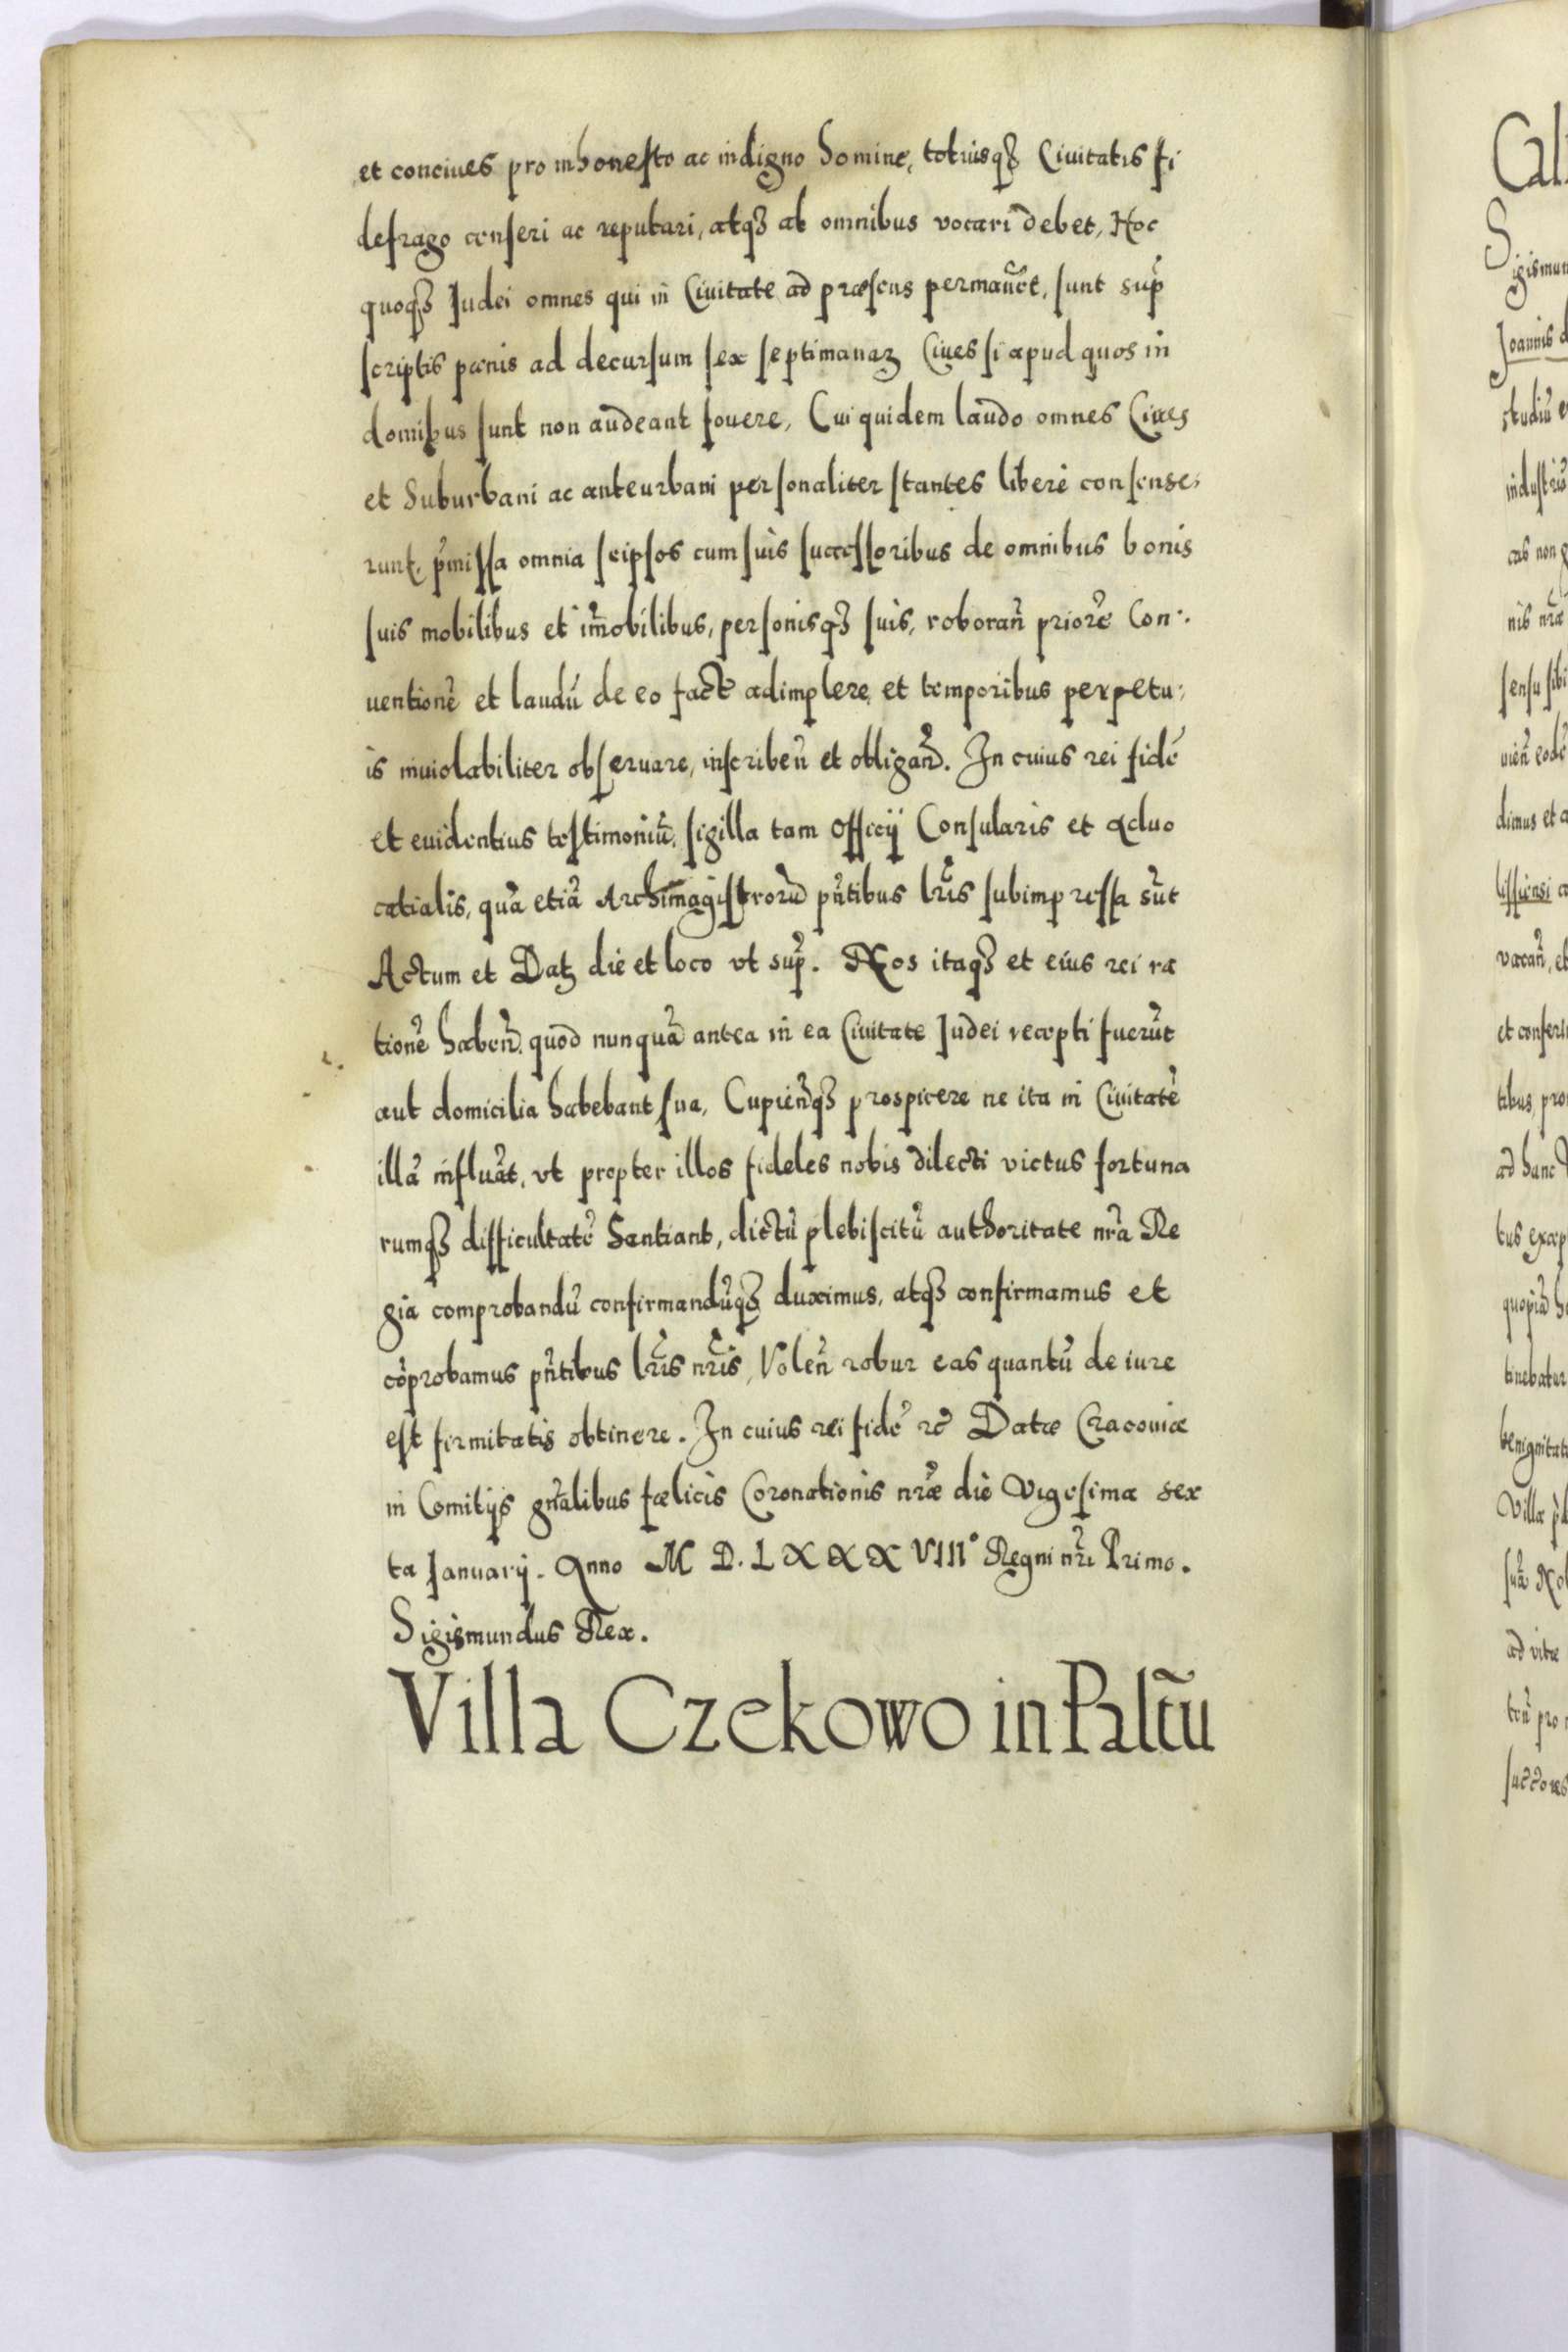 et conciues pro inhonesto ac indigno homine, totiusqȝ Ciuitatis fi
defrago censeri ac reputari, atqȝ ab omnibus vocari debet, Hoc
quoqȝ Iudei omnes qui in Ciuitate ad præsens permanēt, sunt sup̄
scriptis pœnis ad decursum sex septimanaꝝ Ciues si apud quos in
domibus sunt non audeant fouere, Cui quidem laudo omnes Ciues
et Suburbani ac anteurbani personaliter stantes liberè consense,
runt, p̄missa omnia seipsos cum suis successoribus de omnibus bonis
suis mobilibus et im̄obilibus, personisqȝ suis, roboran̄ priorē Con
uentionē et laudū de eo fact adimplere, et temporibus perpetu,
is inuiolabiliter obseruare, inscriben̄ et obligan̄. In cuius rei fidē
et euidentius testimoniū, sigilla tam Officij Consularis et Aduo
catialis, quā etiā Archimagistrorū pn̄tibus lr̄is subimpressa sūt
Actum et Datꝫ die et loco vt sup̄. Nos itaqȝ et eius rei ra
tionē haben̄, quod nunquā antea in ea Ciuitate Iudei recepti fuerūt
aut domicilia habebant sua, Cupien̄qȝ prospicere ne ita in Ciuitatē
illā influāt, vt propter illos fideles nobis dilecti victus fortuna
rumqȝ difficultatē Santiant, dictū plebiscitū authoritate nr̄a Re
gia comprobandū confirmandūqȝ duximus, atqȝ confirmamus et
cōprobamus pn̄tibus lr̄is nr̄is, Volen̄ robur eas quantū de iure
est firmitatis obtinere. In cuius rei fidē rc̄ Datæ Cracouiæ
in Comitijs gn̄alibus fœlicis Coronationis nr̄æ die Vigesima sex
ta Ianuarij. Anno M D. L X X X VIII° Regni nr̄i Primo.
Sigismundus Rex.
Villa Czekowo in Palt̄u
Cal
Sigismun
Ioannis d
studiū e
industriū
as non g
nis nr̄æ
sensu sibi
uien̄ eodē
dimus et a
lissiensi a
vacan̄, et
et conferi
tibus, pro
ad hanc
tus excep
quopiā h
tinebatur
benignitati
Villæ p
suā No
ad vitæ
ten̄ pro